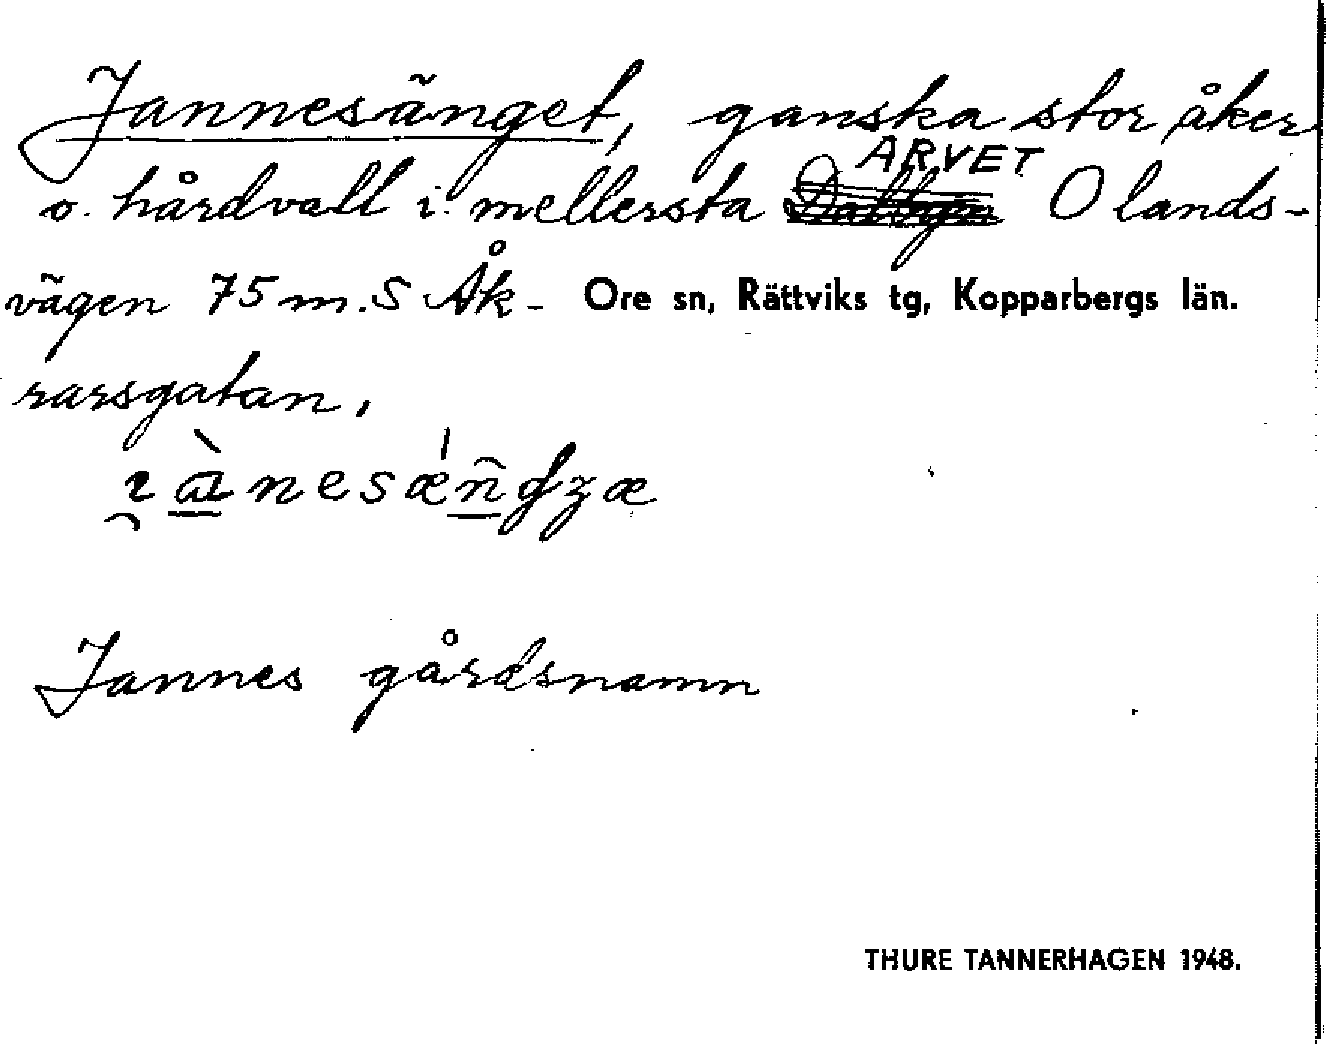 Jannesänget, ganska stor åker
ARVET
o. hårdvall i mellersta Dalbyn O lands-
vägen 75 m. S Åk- Ore sn, Rättviks tg, Kopparbergs län.
rarsgatan,
Jannes gårdsnamn
THURE TANNERHAGEN 1948.